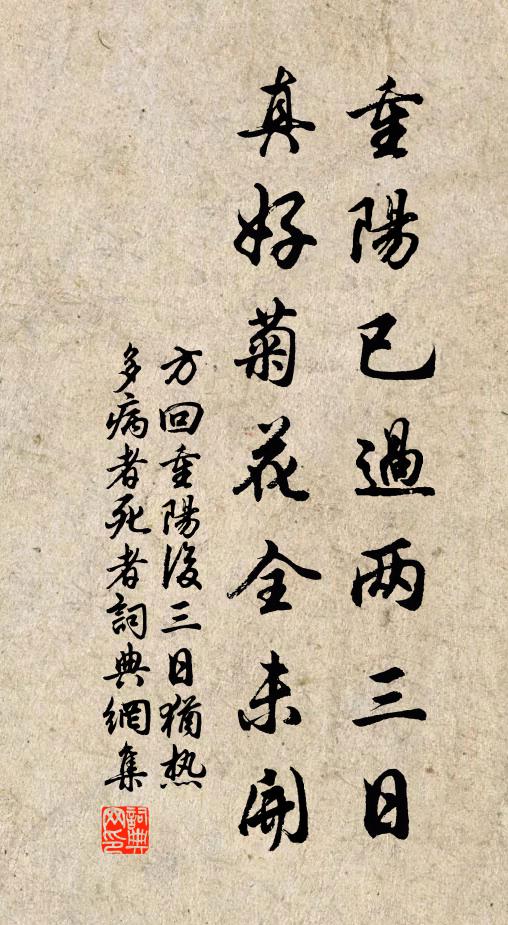 重陽已過两三日
真好菊花全未開
方回重陽後三日猶热
多病者死者詞典網集
詞典
网印